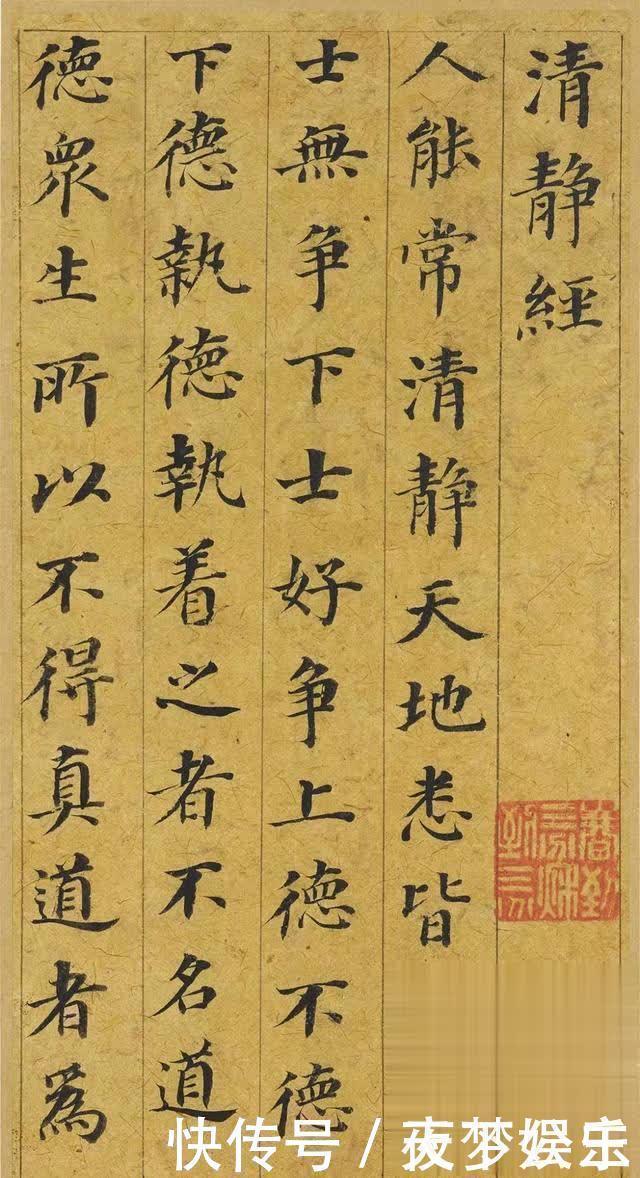 清静經
人能常清静天地悉皆
士無争下士好争上德不德
下德執德執着之者不名道
德眾生所以不得真道者為
快传号 / 夜梦娱乐